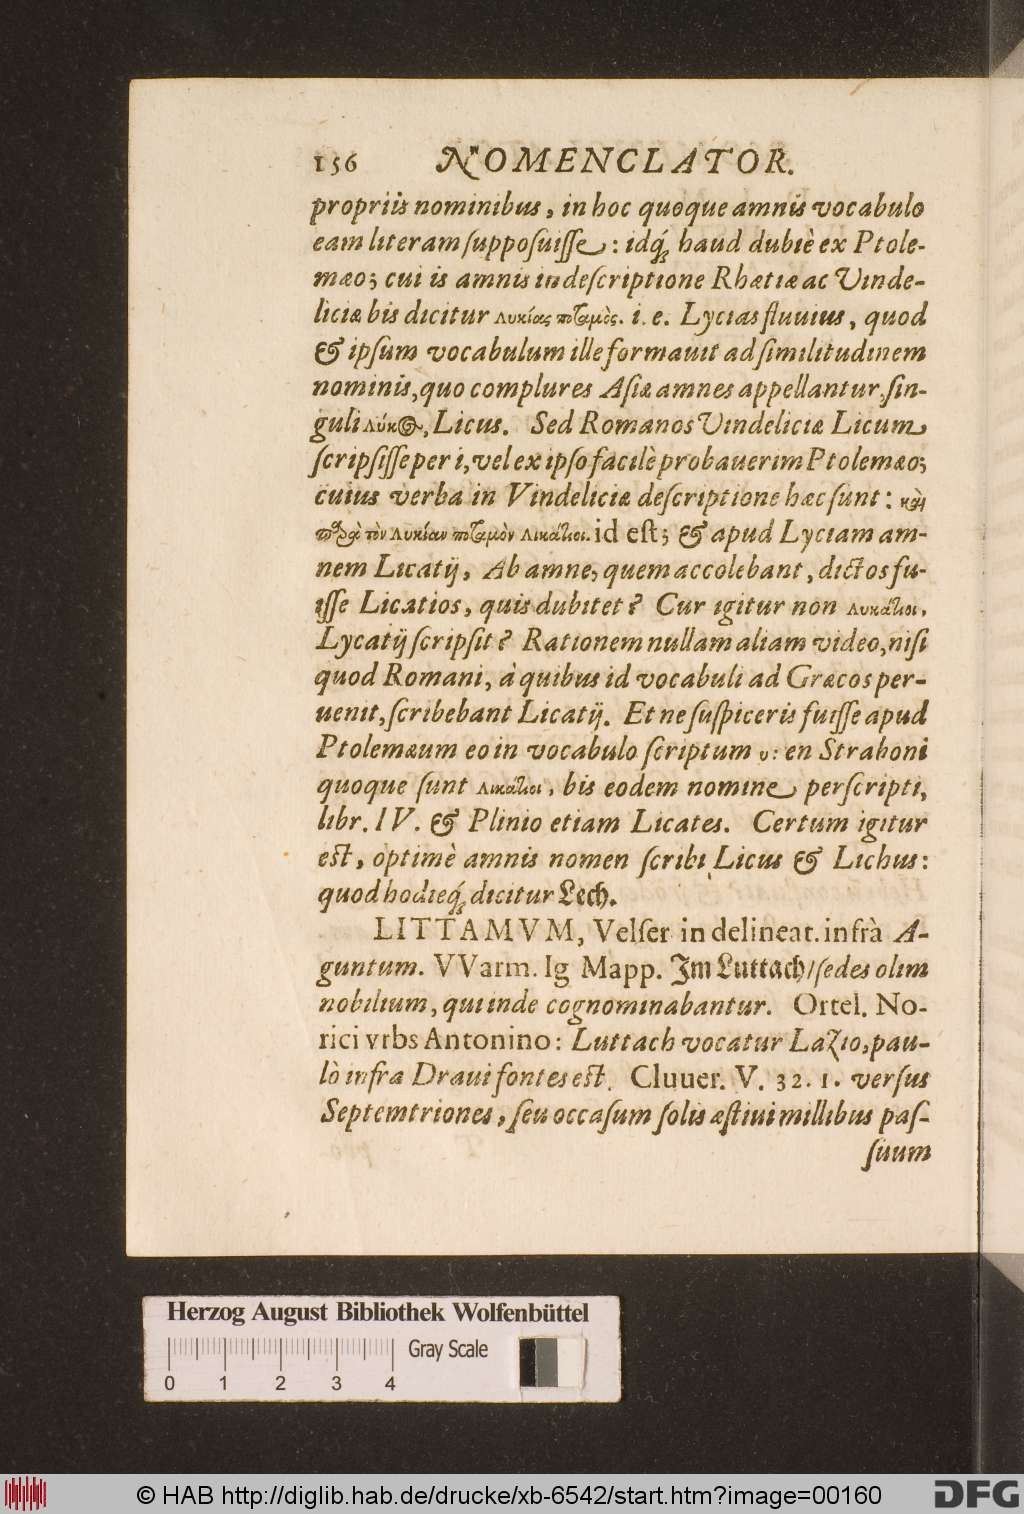 156 NOMENCLATOR.
propriis nominibus, in hoc quoque amnis vocabulo
eam literam ſuppoſuiſſe: idq́; haud dubiè ex Ptole-
mæo; cui is amnis in deſcriptione Rhætiæ ac Vinde-
liciæ bis dicitur Λυκίας ποταμὸς. i. e. Lycias fluuius, quod
& ipſum vocabulum ille formauit ad ſimilitudinem
nominis, quo complures Aſiæ amnes appellantur, ſin-
guli Λύκος, Licus. Sed Romanos Vindeliciæ Licum
ſcripſiſſe per i, vel ex ipſo facilè probauerim Ptolemæo;
cuius verba in Vindeliciæ deſcriptione hæc ſunt: καὶ
παρὰ τὸν Λυκίαν ποταμὸν Λικάτιοι. id eſt; & apud Lyciam am-
nem Licatij, Ab amne, quem accolebant, dictos fu-
iſſe Licatios, quis dubitet? Cur igitur non Λυκάτιοι,
Lycatij ſcripſit? Rationem nullam aliam video, niſi
quod Romani, à quibus id vocabuli ad Græcos per-
uenit, ſcribebant Licatij. Et ne ſuſpiceris fuiſſe apud
Ptolemæum eo in vocabulo ſcriptum υ: en Straboni
quoque ſunt Λικάτιοι, bis eodem nomine perſcripti,
libr. IV. & Plinio etiam Licates. Certum igitur
eſt, optimè amnis nomen ſcribi Licus & Lichus:
quod hodieq́; dicitur Lech.
LITTAMVM, Velſer in delineat. infrà A-
guntum. VVarm. Ig Mapp. Im Luttach/ ſedes olim
nobilium, qui inde cognominabantur. Ortel. No-
rici vrbs Antonino: Luttach vocatur Lazio, pau-
lò infra Draui fontes eſt. Cluuer. V. 32. 1. verſus
Septemtriones, ſeu occaſum ſolis æſtiui millibus paſ-
ſuum
Herzog August Bibliothek Wolfenbüttel
Gray Scale
0 1 2 3 4
© HAB http://diglib.hab.de/drucke/xb-6542/start.htm?image=00160
DFG